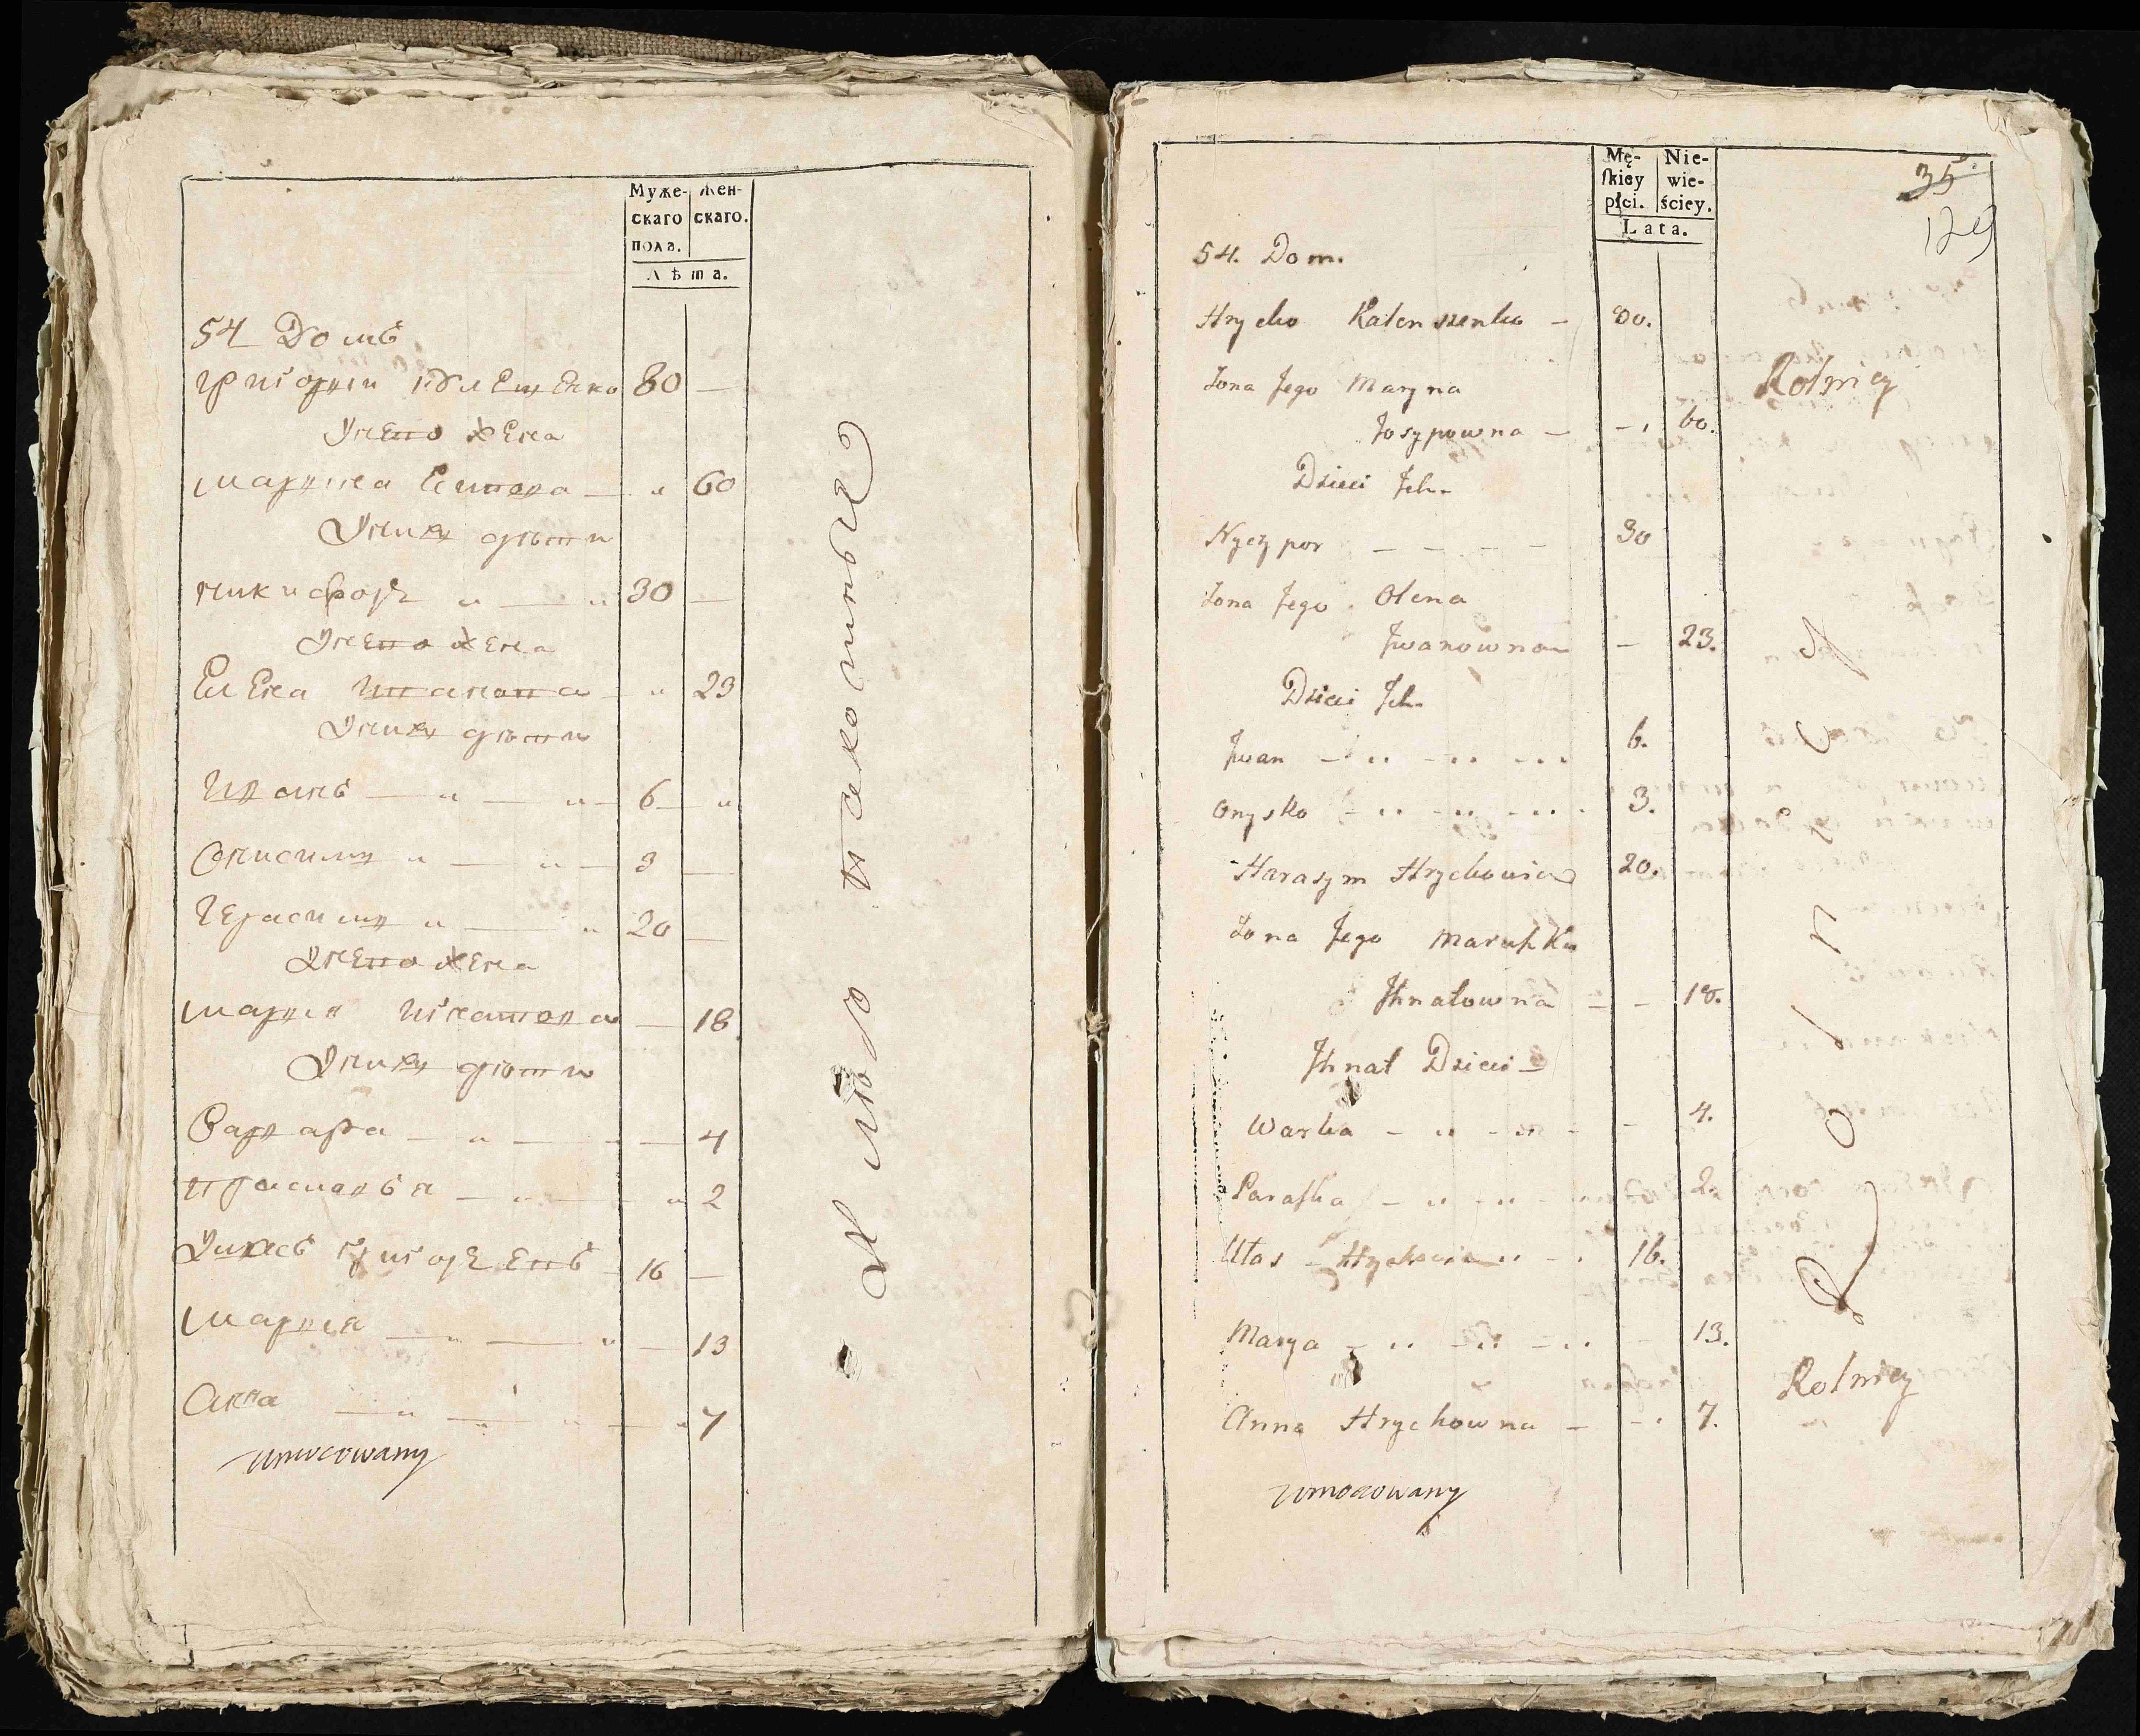 Муже-
скаго
пола.
Жен-
скаго.
Лѣта.
54 Домъ
Григорий 80 —
У него жена
Марина — „ 60
У них дѣти
Никифоръ „ — „ 30 —
У него жена
Елена Иванова — „ 23
У них дѣти
Иванъ — „ — „ — 6 — „
Онисимъ „ — „ — 3 —
Герасимъ „ — „ 20 —
У него жена
Мария Игнатова — 18
У них дѣти
Варвара — „ — — 4
Прасковья — „ — „ 2
Григорьевъ 16 —
Мария — „ — „ — 13
Анна — „ — „ — „ 7
Umocowany
Mę-
skiey
płci.
Nie-
wie-
ściey.
Lata.
35
129
54. Dom.
Hrycko — 80.
Żona Jego Maryna
Josypowna — — 60.
Dzieci Ich
Nyczypor — — — — 30
Żona Jego Olena
Jwanowna — 23.
Dzieci Ich
Jwan — „ — „ — 6.
Onysko — „ — „ — 3.
Harasym Hryckowicz 20.
Żona Jego Maruszka
Jhnatowna — — 18.
Jhnat Dzieci —
Warka — „ — „ — — 4.
Paraska — „ — „ — 2.
Ułas Hryckowicz „ — 16.
Marya — „ — „ — „ — 13.
Anna Hryckowna — — 7.
Umocowany
Rolnicy
Rolnicy
Rolnicy